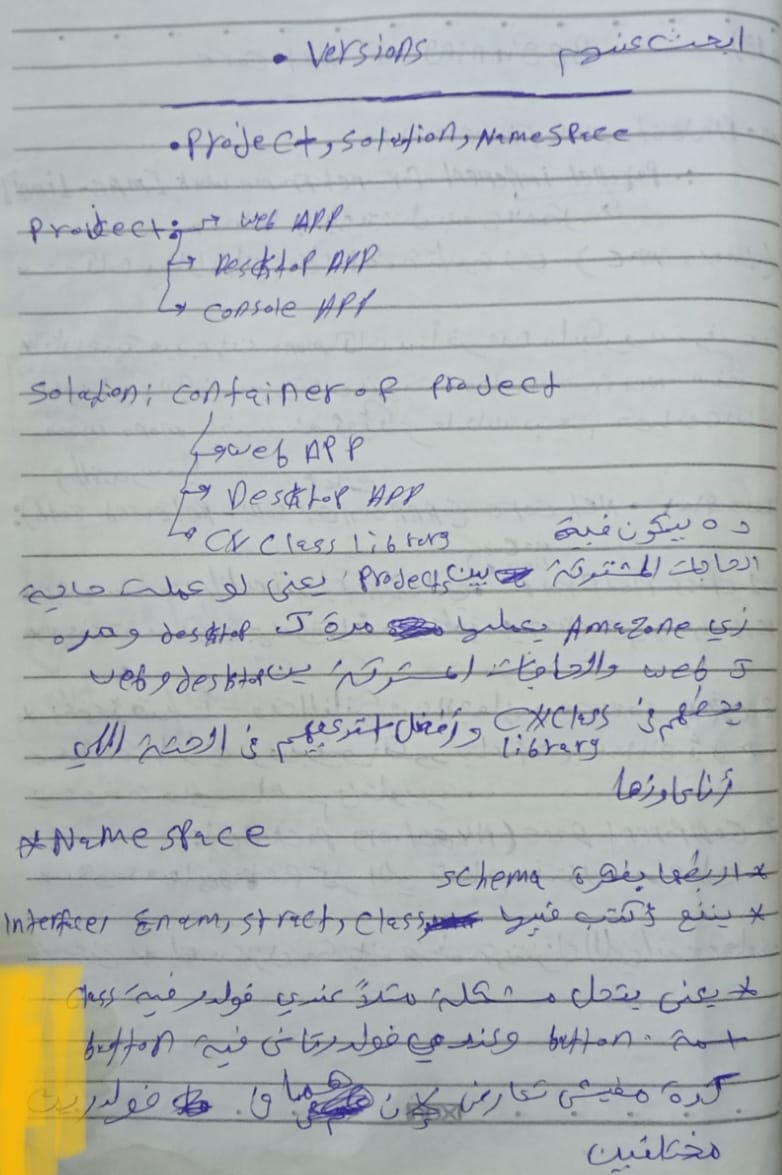 • Versions ابحث عنهم
• Project, Solution, NameSpace
Project: → Web APP
→ Desktop APP
→ Console APP
Solution: Container of Project
→ Web APP
→ Desktop APP
→ C# Class library ده بيكون فية
الحاجات المشتركة بين Projects يعني لو عملت حاجة
زي Amazone بعملها مرة ك desktop و مره
ك web والحاجات المشتركة بين desktop و web
بحطهم في C# Class library و أعمل استدعيهم في الحتة اللي
أنا عاوزها
* NameSpace
* اربطها بفكرة schema
* ينفع أكتب فيها Interface, Enum, struct, class
* يعني بتحل مشكلة مثلاً عندي فولدر فية class
اسمة button وعندي فولدر تاني فية button
كدة مفيش تعارض لان هما ف فولدرين
مختلفين